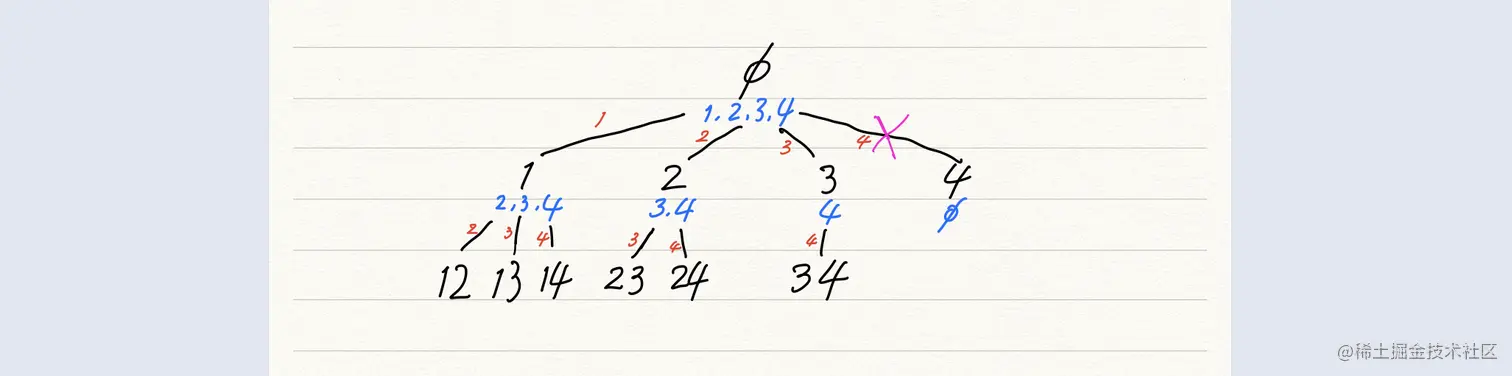 ∅
1.2.3.4
1 2 3 4
1 2 3 4
2.3.4 3.4 4 ∅
2 3 4 3 4 4
12 13 14 23 24 34
@稀土掘金技术社区